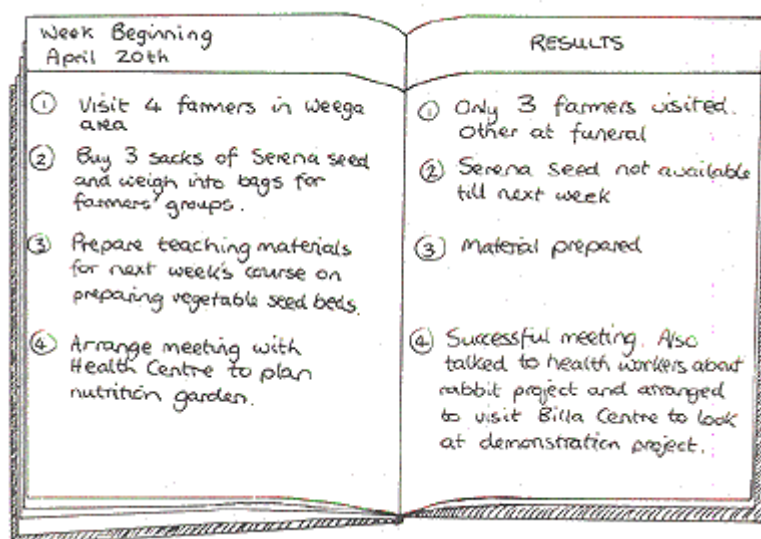 Week Beginning
April 20th
① Visit 4 farmers in Weega
area
② Buy 3 sacks of Serena seed
and weigh into bags for
farmers' groups.
③ Prepare teaching materials
for next week's course on
preparing vegetable seed beds.
④ Arrange meeting with
Health Centre to plan
nutrition garden.
RESULTS
① Only 3 farmers visited.
Other at funeral
② Serena seed not available
till next week
③ Material prepared
④ Successful meeting. Also
talked to health workers about
rabbit project and arranged
to visit Billa Centre to look
at demonstration project.